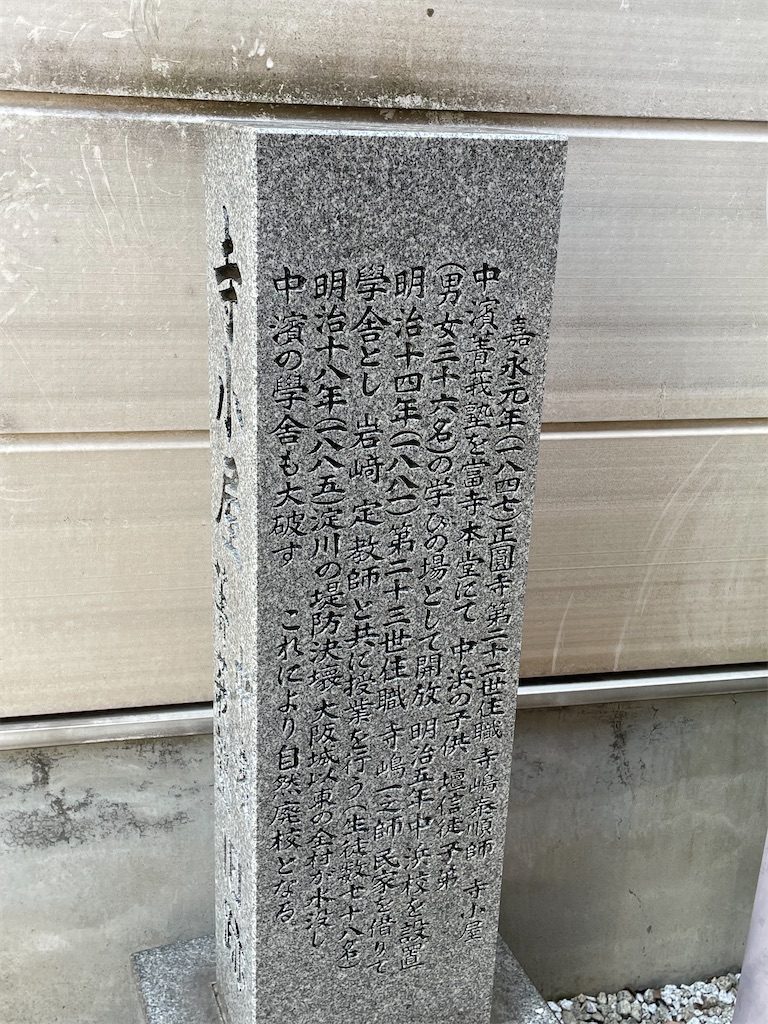 嘉永元年(一八四七)正圓寺第二十二世住職寺嶋泰順師 寺小屋
中濱菁莪塾を當寺本堂にて 中浜の子供 壇信徒子弟
(男女三十六名)の学びの場として開放 明治五年中浜校を設置
明治十四年(一八八一)第二十三世住職 寺嶋一之師 民家を借りて
學舎とし 岩﨑 定教師と共に授業を行う(生徒数七十八名)
明治十八年(一八八五)淀川の堤防決壊 大阪城以東の全村が水没し
中濱の學舎も大破す これにより自然廃校となる
寺小屋